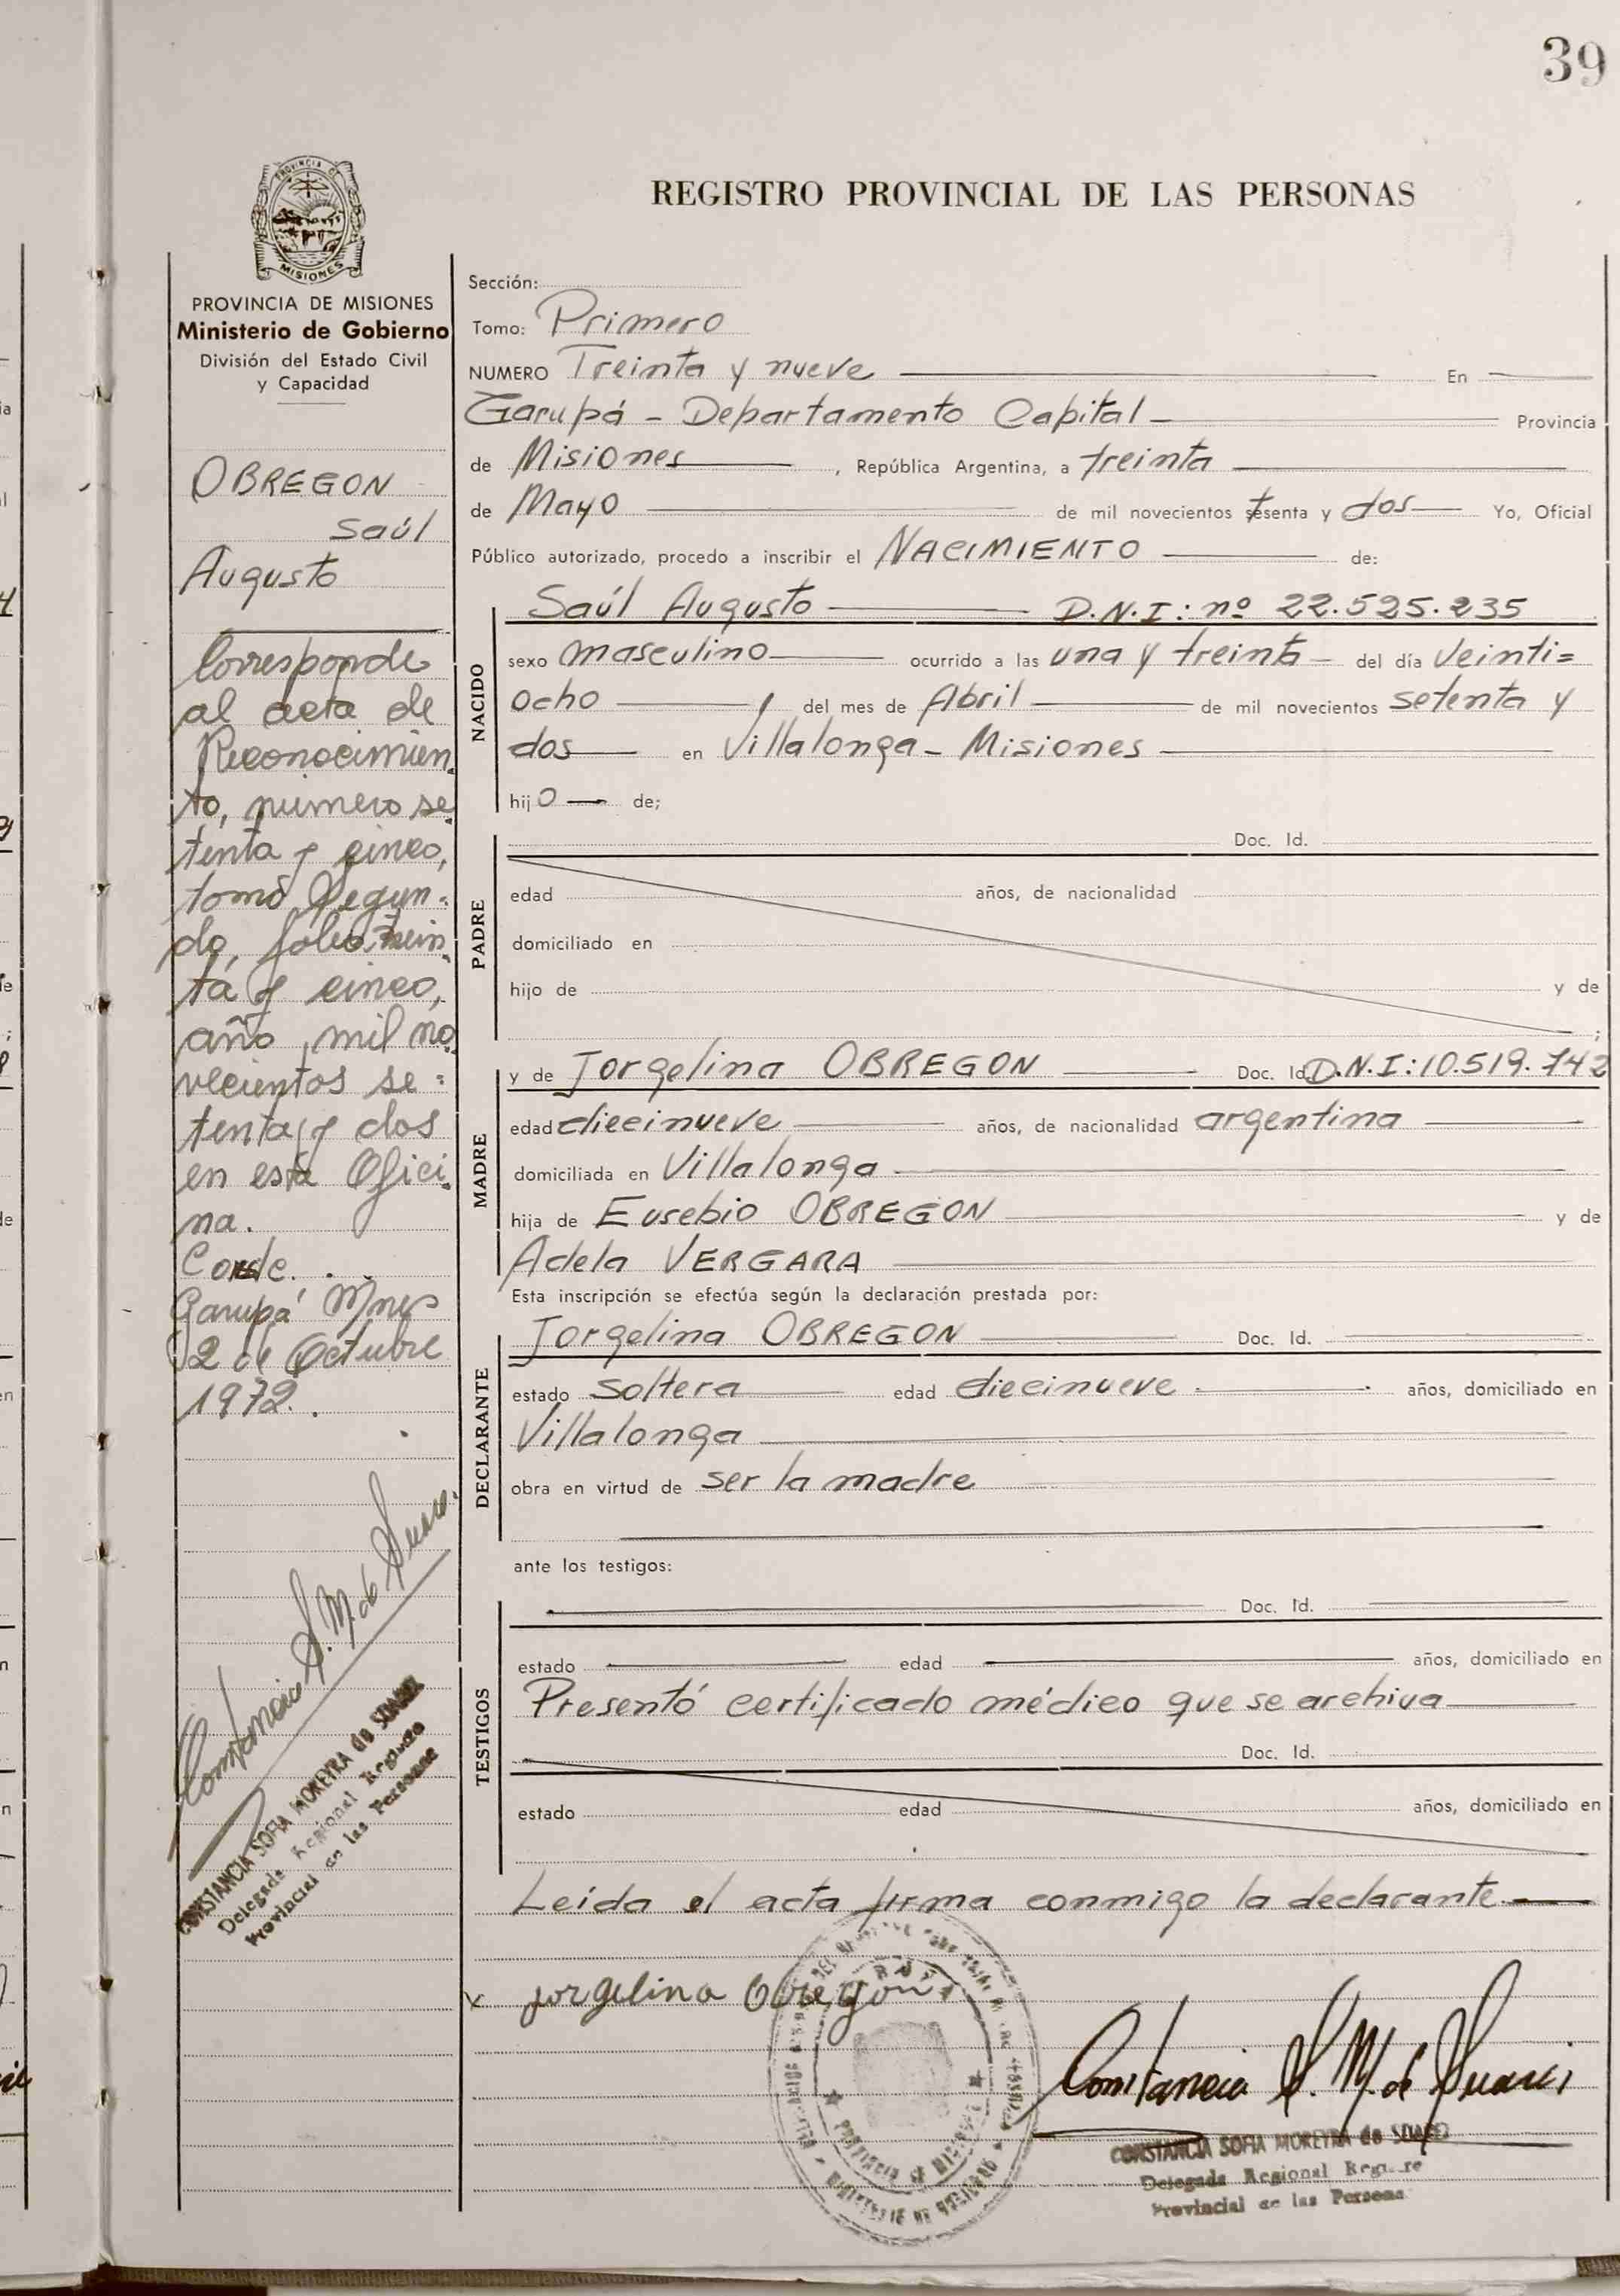 39
PROVINCIA DE
MISIONES
PROVINCIA DE MISIONES
Ministerio de Gobierno
División del Estado Civil
y Capacidad
OBREGON
Saúl
Augusto
Corresponde
al acta de
Reconocimien
to, número se
tenta y cinco,
tomo Segun=
do, folio Trein
ta y cinco,
año mil no
vecientos se=
tenta y dos
en esta Ofici
na.
Conde.
Garupá Mnes
2 de Octubre
1972.
Constancia S. M. de Suarez
CONSTANCIA SOFIA MOREYRA de SUAREZ
Delegada Regional Registro
Provincial de las Personas
REGISTRO PROVINCIAL DE LAS PERSONAS
Sección:
Tomo: Primero
NUMERO Treinta y nueve En
Garupá - Departamento Capital Provincia
de Misiones, República Argentina, a treinta
de Mayo de mil novecientos setenta y dos Yo, Oficial
Público autorizado, procedo a inscribir el NACIMIENTO de:
Saúl Augusto D.N.I: nº 22.525.235
NACIDO
sexo masculino ocurrido a las una y treinta del día veinti=
ocho del mes de Abril de mil novecientos setenta y
dos en Villalonga - Misiones
hijo de;
PADRE
Doc. Id.
edad años, de nacionalidad
domiciliado en
hijo de y de
;
MADRE
y de Jorgelina OBREGON Doc. Id. D.N.I: 10.519.742
edad diecinueve años, de nacionalidad argentina
domiciliada en Villalonga
hija de Eusebio OBREGON y de
Adela VERGARA
Esta inscripción se efectúa según la declaración prestada por:
DECLARANTE
Jorgelina OBREGON Doc. Id.
estado soltera edad diecinueve años, domiciliado en
Villalonga
obra en virtud de ser la madre
ante los testigos:
TESTIGOS
Doc. Id.
estado edad años, domiciliado en
Presentó certificado médico que se archiva
Doc. Id.
estado edad años, domiciliado en
Leida el acta firma conmigo la declarante
x jorgelina Obregon
PROVINCIA DE MISIONES
Constancia S. M. de Suarez
CONSTANCIA SOFIA MOREYRA de SUAREZ
Delegada Regional Registro
Provincial de las Personas